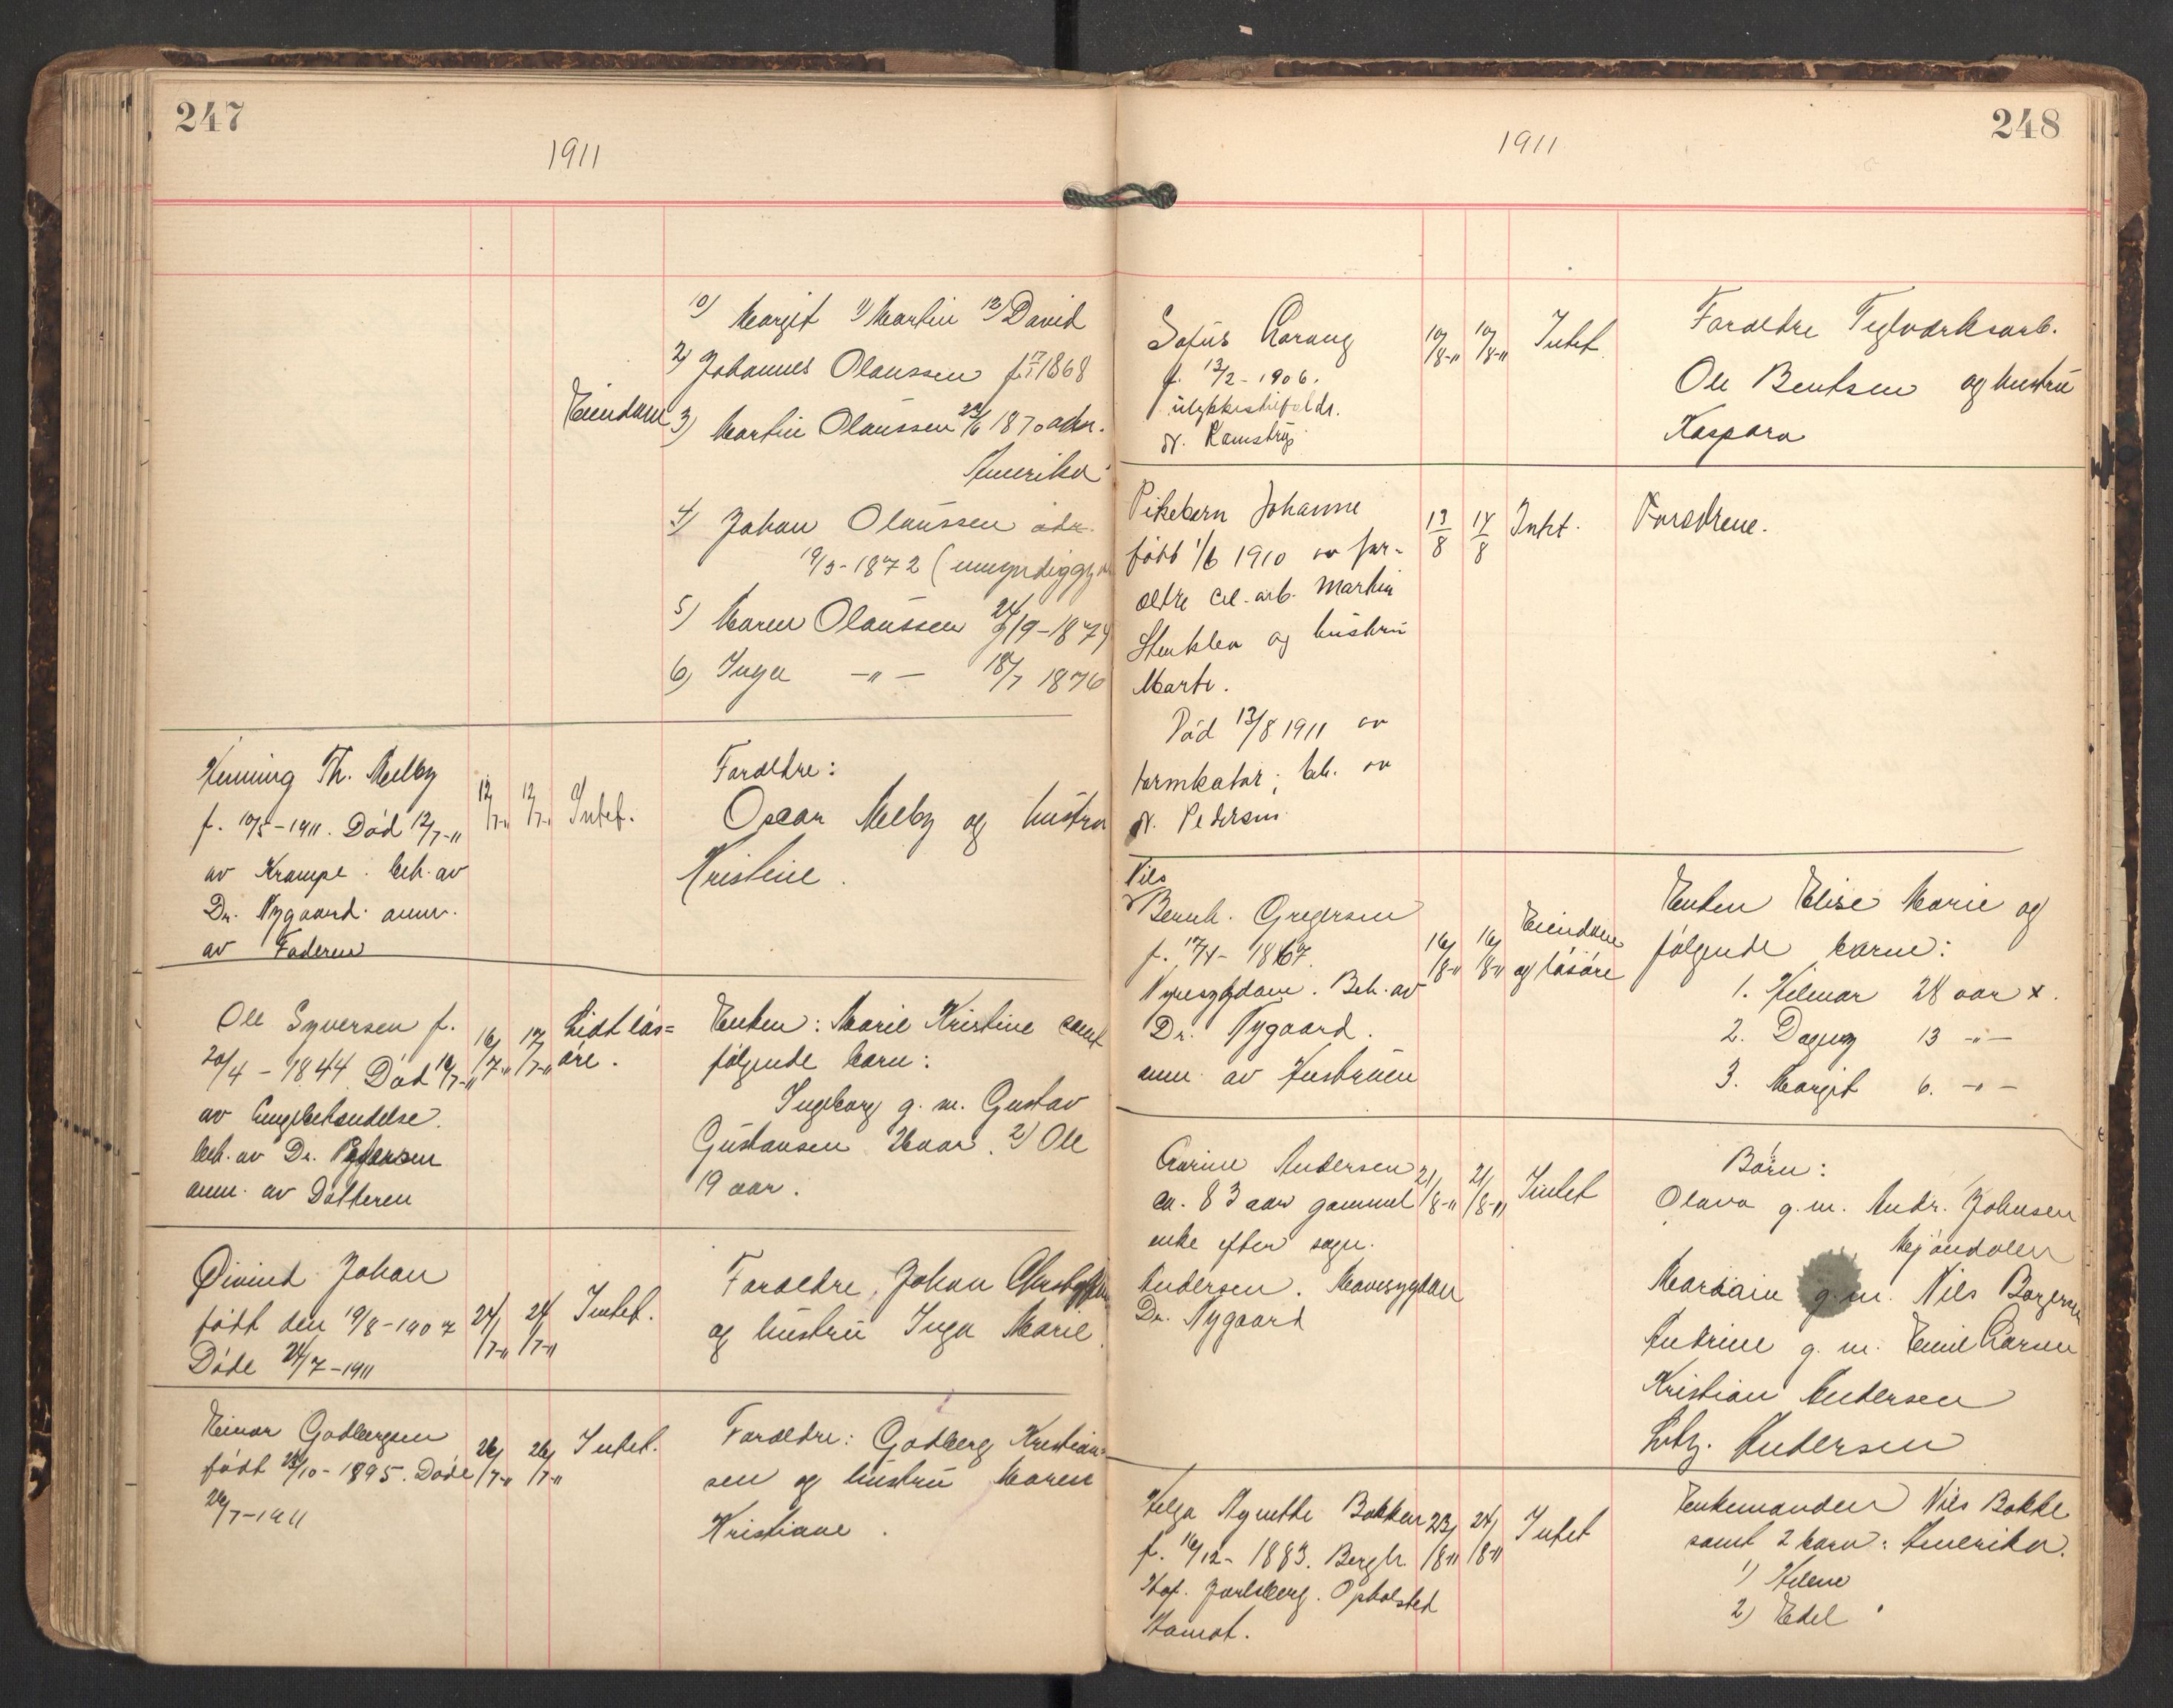 247
1911
10) Margit 11) Martin 12) David
2) Johannes Olaussen f. 17/1 1868
Eiendom
3) Martin Olaussen 23/6 1870 adr.
Amerika
4) Johan Olaussen adr.
19/3-1872 (umyndiggj
5) Maren Olaussen 24/9-1874
6) Inga -"- 18/7 1876
Henning Th. Melby
f. 10/5-1911. Död 12/7-11
av Krampe. beh. av
Dr. Nygaard. anm.
av Faderen
12/7-11 12/7-11 Intet.
Foraeldre:
Oscar Melby og hustru
Kristine.
Ole Syversen f.
20/4-1844. Död 16/7-11
av
beh. av Dr. Pedersen
anm. av Datteren
16/7-11 17/7-11 Lidt lös=
öre.
Enken: Marie Kristine samt
fölgende barn:
Ingeborg g. m. Gustav
Gustavsen 26 aar. 2) Ole
19 aar.
Øivind Johan
födt den 19/8-1907
Döde 24/7-1911
24/7-11 24/7-11 Intet.
Foraeldre, Johan
og hustru Inga Marie.
Einar Godbergsen
födt /10-1895. Döde
26/7-1911
26/7-11 26/7-11 Intet.
Foraeldre: Godberg Kristian=
sen og hustru Maren
Kristiane.
248
1911
Sofus
f. 13/2-1906.
ulykkestilfældr.
Dr. Kamstrup
10/8-11 10/8-11 Intet.
Foraeldre Teglværksarb.
Ole Bentsen og hustru
Kaspara
Pikebarn Johanne
födt 1/6 1910 av for-
ældre cel.-arb. Martin
Stenklev og hustru
Marte.
Död 13/8 1911 av
tarmkatar; beh. av
Dr. Pedersen
13/8 14/8 Intet.
Forældrene.
Nils
Bernh. Gregersen
f. 17/4-1867.
Nyresygdom. Beh. av
Dr. Nygaard.
anm. av Hustruen
16/8-11 16/8-11 Eiendom
og lösöre
Enken Elise Marie og
fölgende barn:
1. Hilmar 28 aar x.
2. Dagny 13 -"-
3. Margit 6. -"-
Andersen
ca. 83 aar gammel
enke efter sagm.
Andersen. Mavesygdom
Dr. Nygaard
21/8-11 21/8-11 Intet
Börn:
Olava g.m. Andr. Johnsen
Mjöndalen
g.m. Nils
Andrine g. m. Emil Larsen
Kristian Andersen
Andersen
Helga Agnethe Bakken
f. 16/12-1883. Bergh
Hof. Jarlsberg. Opholsted
Hamat.
23/8-11 24/8-11 Intet
Enkemanden Nils Bakke
samt 2 barn: Amerika.
1) Helene
2) Edel